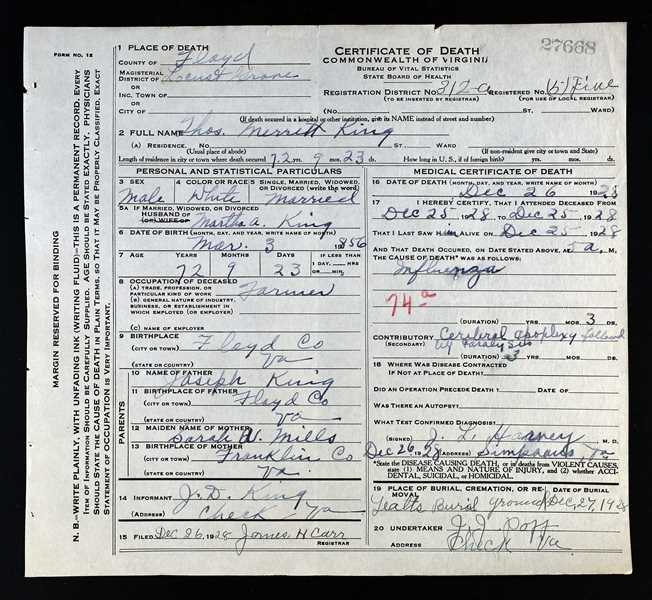 FORM NO. 12
MARGIN RESERVED FOR BINDING
N. B.—WRITE PLAINLY, WITH UNFADING INK (WRITING FLUID)—THIS IS A PERMANENT RECORD. EVERY
ITEM OF INFORMATION SHOULD BE CAREFULLY SUPPLIED. AGE SHOULD BE STATED EXACTLY. PHYSICIANS
SHOULD STATE THE CAUSE OF DEATH IN PLAIN TERMS, SO THAT IT MAY BE PROPERLY CLASSIFIED. EXACT
STATEMENT OF OCCUPATION IS VERY IMPORTANT.
1 PLACE OF DEATH
COUNTY OF Floyd
MAGISTERIAL DISTRICT OF Locust Grove
OR
INC. TOWN OF
OR
CITY OF
CERTIFICATE OF DEATH
COMMONWEALTH OF VIRGINIA
BUREAU OF VITAL STATISTICS
STATE BOARD OF HEALTH
27668
REGISTRATION DISTRICT NO. 312-a REGISTERED NO. (5) Five
(TO BE INSERTED BY REGISTRAR) (FOR USE OF LOCAL REGISTRAR)
(No. St. Ward
(If death occured in a hospital or other institution, give its NAME instead of street and number)
2 FULL NAME Thos. Merrett King
(A) RESIDENCE. No. St. Ward
(Usual place of abode) (If non-resident give city or town and State)
Length of residence in city or town where death occured 72 yrs. 9 mos. 23 ds. How long in U. S., if of foreign birth? yrs. mos. ds.
PERSONAL AND STATISTICAL PARTICULARS
3 SEX Male
4 COLOR OR RACE White
5 SINGLE, MARRIED, WIDOWED, OR DIVORCED (write the word) Married
5A IF MARRIED, WIDOWED, OR DIVORCED
HUSBAND OF
(OR) WIFE OF Martha A. King
6 DATE OF BIRTH (MONTH, DAY, AND YEAR, WRITE NAME OF MONTH)
Mar. 3 1856
7 AGE YEARS MONTHS DAYS IF LESS THAN
1 DAY, HRS
OR MIN.
72 9 23
8 OCCUPATION OF DECEASED
(A) TRADE, PROFESSION, OR PARTICULAR KIND OF WORK Farmer
(B) GENERAL NATURE OF INDUSTRY, BUSINESS, OR ESTABLISHMENT IN WHICH EMPLOYED (OR EMPLOYER)
(C) NAME OF EMPLOYER
9 BIRTHPLACE
(CITY OR TOWN) Floyd Co
(STATE OR COUNTRY) Va
PARENTS
10 NAME OF FATHER Joseph King
11 BIRTHPLACE OF FATHER
(CITY OR TOWN) Floyd Co
(STATE OR COUNTRY) Va
12 MAIDEN NAME OF MOTHER
Sarah W. Mills
13 BIRTHPLACE OF MOTHER
(CITY OR TOWN) Franklin Co
(STATE OR COUNTRY) Va.
14 INFORMANT J. D. King
(ADDRESS) Check Va
15 FILED Dec 26, 1928 James H Carr
REGISTRAR
MEDICAL CERTIFICATE OF DEATH
16 DATE OF DEATH (MONTH, DAY, AND YEAR, WRITE NAME OF MONTH)
Dec 26 1928
17 I HEREBY CERTIFY, THAT I ATTENDED DECEASED FROM
Dec 25, 1928 TO Dec 25, 1928
THAT I LAST SAW HIM ALIVE ON Dec 25 1928
AND THAT DEATH OCCURRED, ON DATE STATED ABOVE, AT a. M.
THE CAUSE OF DEATH* WAS AS FOLLOWS:
Influenza
74a
(DURATION) YRS. MOS. 3 DS.
CONTRIBUTORY Cerebral apoplexy followed
(SECONDARY) by Paralysis
(DURATION) 3 YRS. MOS. DS.
18 WHERE WAS DISEASE CONTRACTED
IF NOT AT PLACE OF DEATH?
DID AN OPERATION PRECEDE DEATH? DATE OF
WAS THERE AN AUTOPSY?
WHAT TEST CONFIRMED DIAGNOSIS?
(SIGNED) J. L. Harvey M. D.
Dec 26, 1928 (ADDRESS) Simpsons Va
*STATE the DISEASE CAUSING DEATH, or in deaths from VIOLENT CAUSES,
state (1) MEANS AND NATURE OF INJURY, and (2) whether ACCI-
DENTAL, SUICIDAL, or HOMICIDAL.
19 PLACE OF BURIAL, CREMATION, OR RE-MOVAL DATE OF BURIAL
Burial Ground Dec, 27, 1928
20 UNDERTAKER
ADDRESS Check Va.